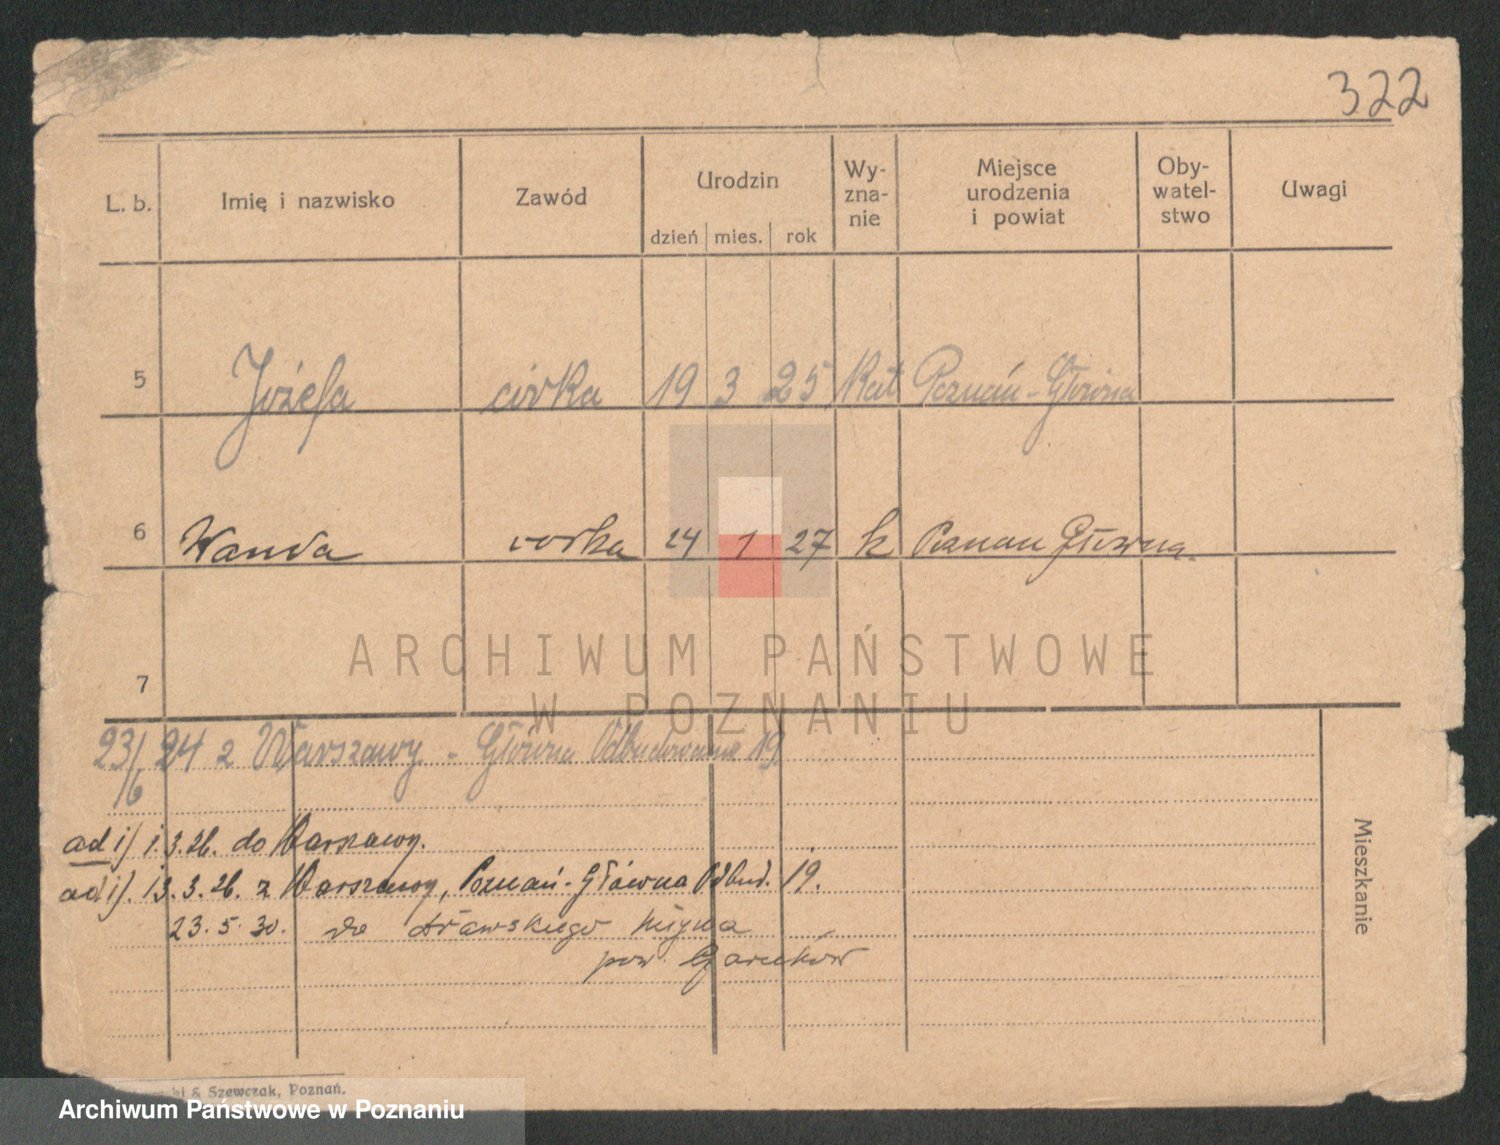 322
L. b. Imię i nazwisko Zawód Urodzin dzień mies. rok Wy-zna-nie Miejsce urodzenia i powiat Oby-watel-stwo Uwagi
5 Józefa córka 19 3 25 Kat Poznań-Główna
6 Wanda corka 24 1 27 k Poznan Główna
7
ARCHIWUM PAŃSTWOWE
W POZNANIU
23/6 24 z Warszawy - Główna Odbudowanie 19
ad 1) 1.3.26. do Warszawy.
ad 1). 13.3.26. z Warszawy, Poznań-Główna Odbud. 19.
23.5.30. do
pow.
Mieszkanie
& Szewczak, Poznań.
Archiwum Państwowe w Poznaniu